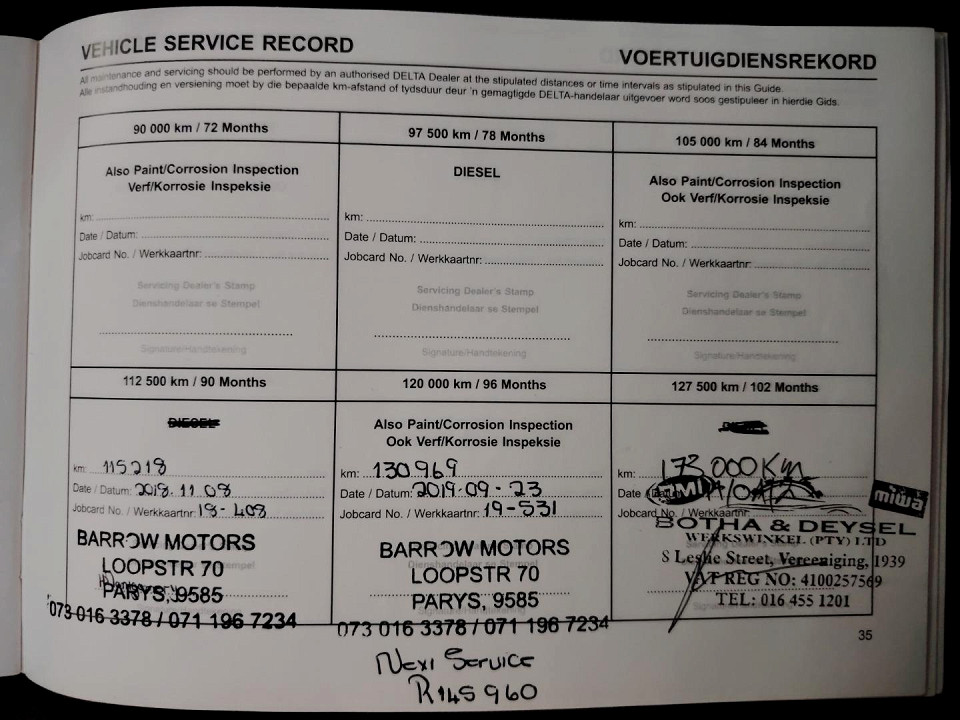 VEHICLE SERVICE RECORD
VOERTUIGDIENSREKORD
All maintenance and servicing should be performed by an authorised DELTA Dealer at the stipulated distances or time intervals as stipulated in this Guide.
Alle instandhouding en versiening moet by die bepaalde km-afstand of tydsduur deur 'n gemagtigde DELTA-handelaar uitgevoer word soos gestipuleer in hierdie Gids.
90 000 km / 72 Months
Also Paint/Corrosion Inspection
Verf/Korrosie Inspeksie
km:
Date / Datum:
Jobcard No. / Werkkaartnr:
Servicing Dealer's Stamp
Dienshandelaar se Stempel
Signature/Handtekening
97 500 km / 78 Months
DIESEL
km:
Date / Datum:
Jobcard No. / Werkkaartnr:
Servicing Dealer's Stamp
Dienshandelaar se Stempel
Signature/Handtekening
105 000 km / 84 Months
Also Paint/Corrosion Inspection
Ook Verf/Korrosie Inspeksie
km:
Date / Datum:
Jobcard No. / Werkkaartnr:
Servicing Dealer's Stamp
Dienshandelaar se Stempel
Signature/Handtekening
112 500 km / 90 Months
DIESEL
km: 115218
Date / Datum: 2018.11.08
Jobcard No. / Werkkaartnr: 18-408
BARROW MOTORS
LOOPSTR 70
PARYS, 9585
073 016 3378 / 071 196 7234
120 000 km / 96 Months
Also Paint/Corrosion Inspection
Ook Verf/Korrosie Inspeksie
km: 130969
Date / Datum: 2019-09-23
Jobcard No. / Werkkaartnr: 19-531
BARROW MOTORS
LOOPSTR 70
PARYS, 9585
073 016 3378 / 071 196 7234
Next Service
R145960
127 500 km / 102 Months
km: 173 000 Km
Date / Datum:
RMI
miwa
Jobcard No. / Werkkaartnr:
BOTHA & DEYSEL
WERKSWINKEL (PTY) LTD
8 Leslie Street, Vereeniging, 1939
VAT REG NO: 4100257569
TEL: 016 455 1201
35